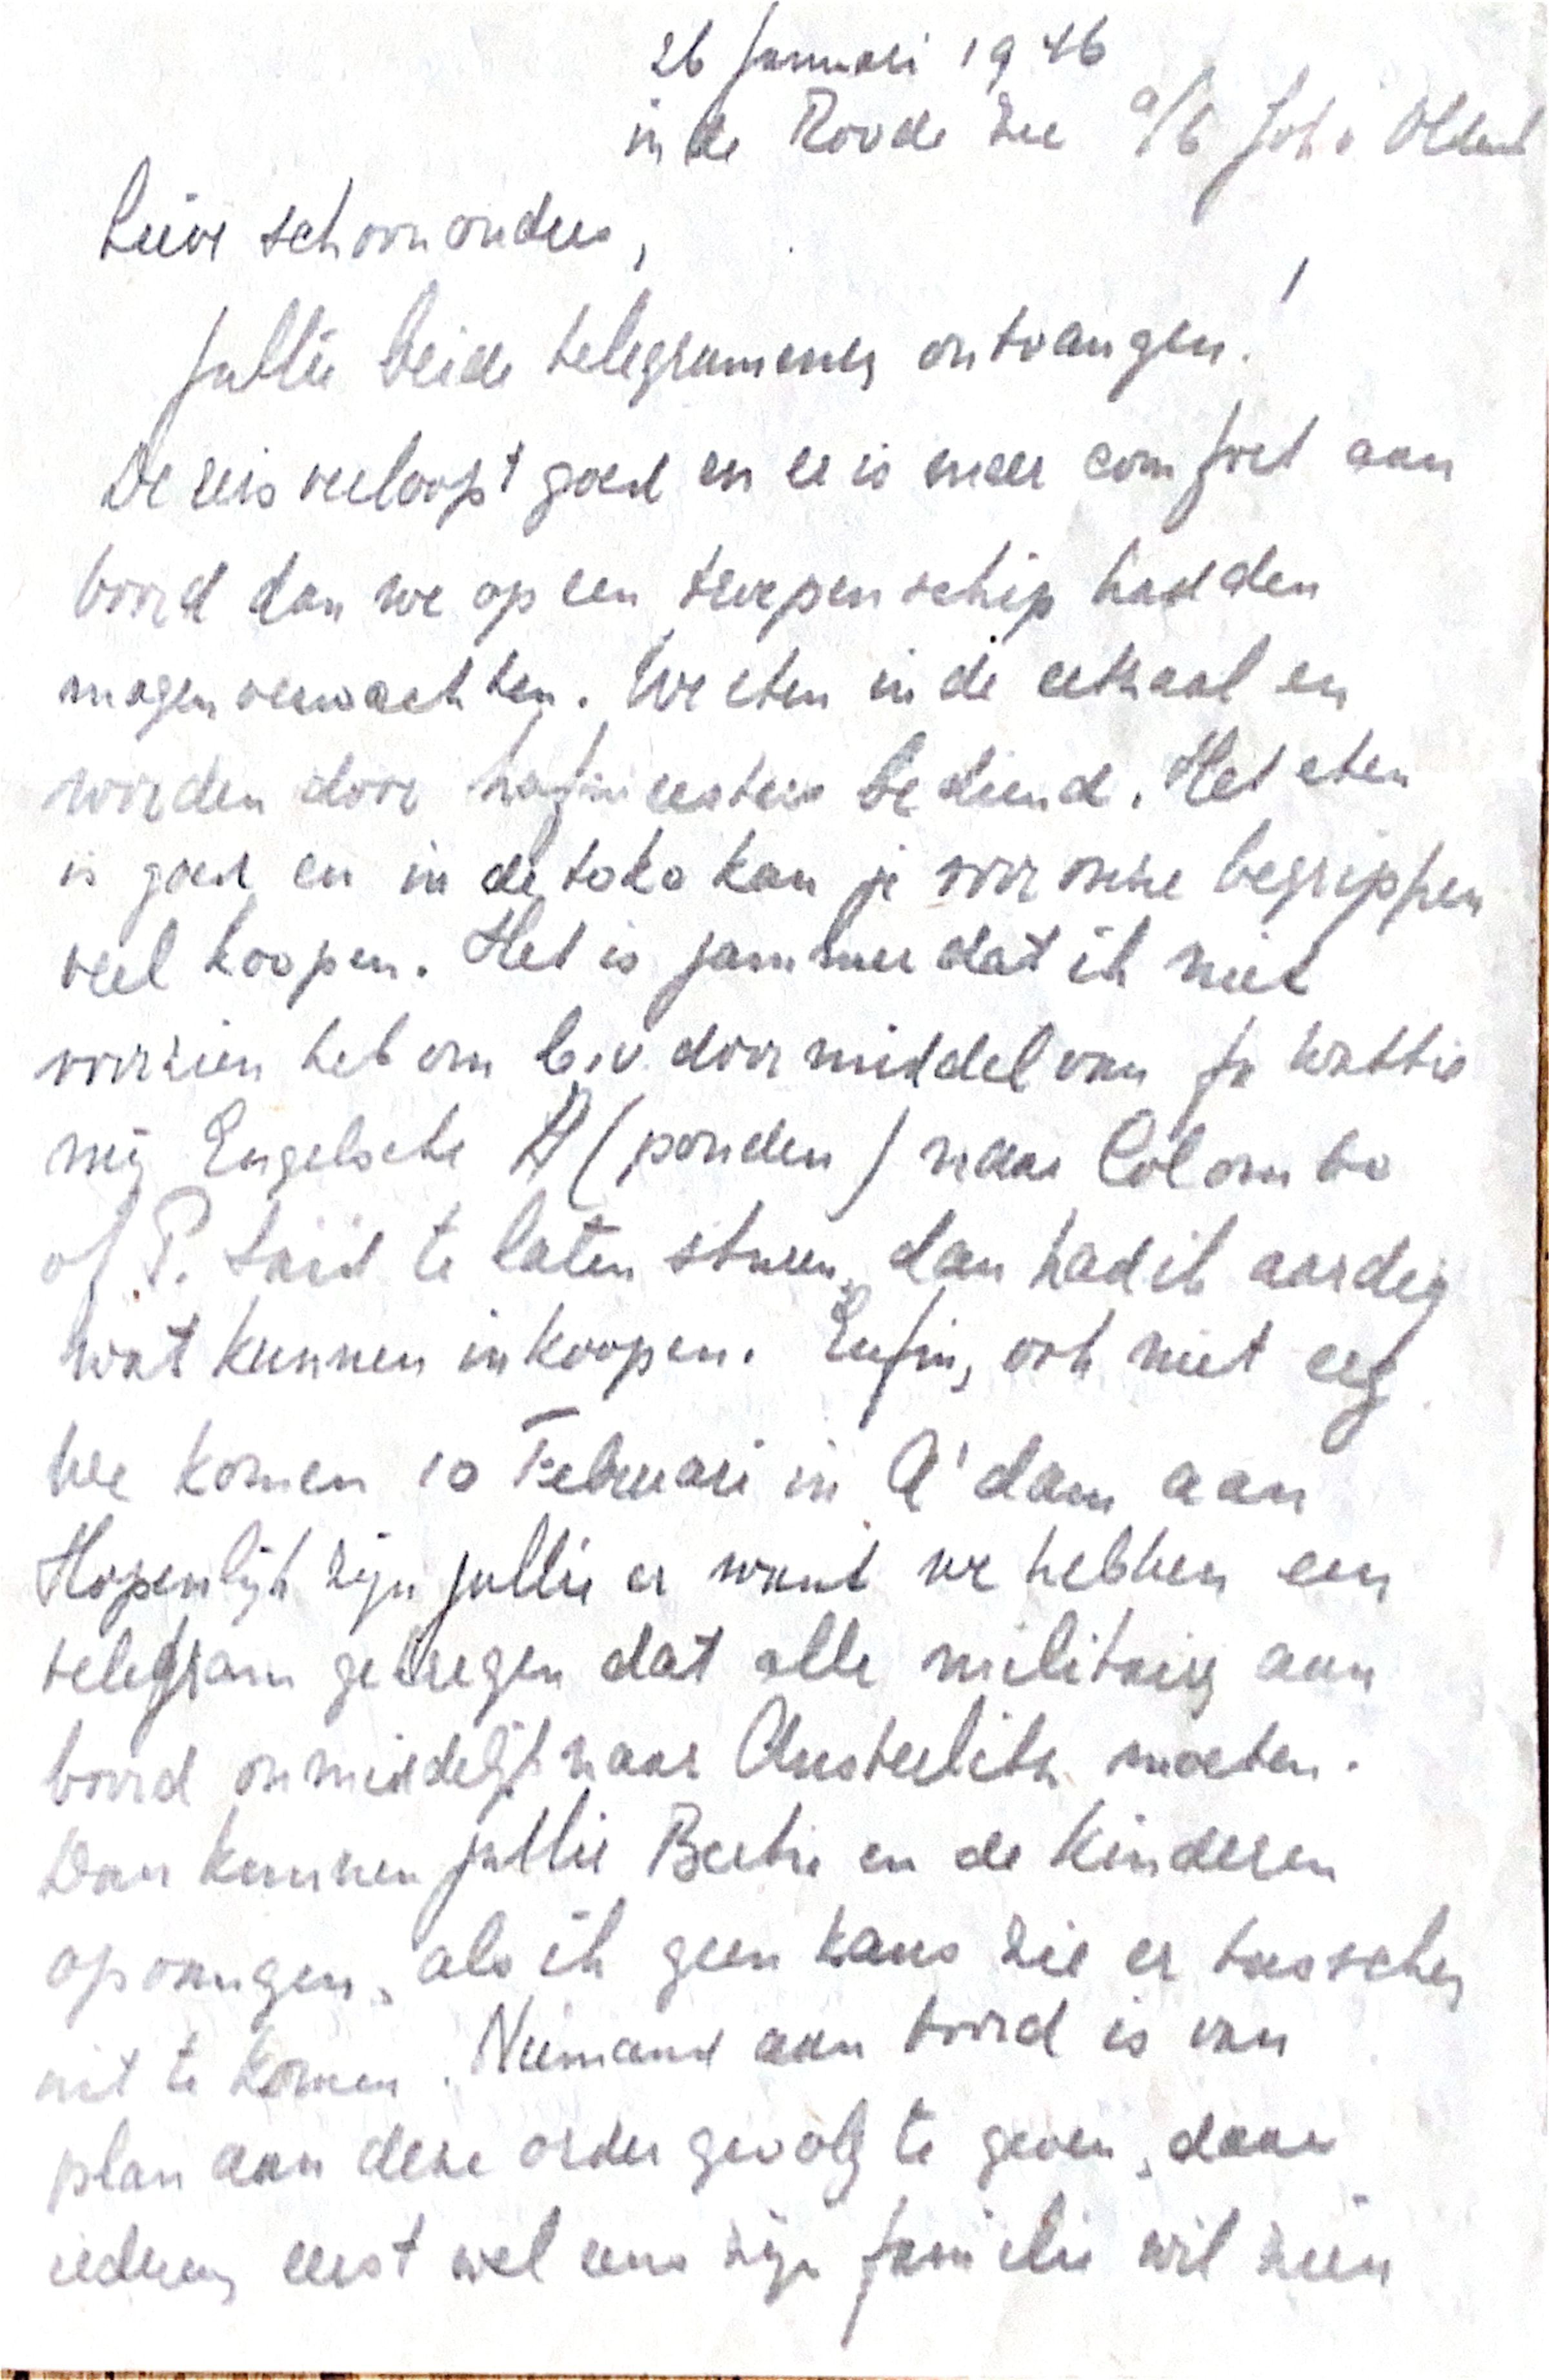 26 Januari 1946
in de Roode Zee a/b Joh. v Olden
Lieve schoonouders,
Jullie beide telegrammen ontvangen!
De reis verloopt goed en er is meer comfort aan
boord dan we op een troepenschip hadden
mogen verwachten. We eten in de eetzaal en
worden door hofmeesters bediend. Het eten
is goed en in de toko kan je voor onze begrippen
veel koopen. Het is jammer dat ik niet
voorzien heb om b.v. door middel van Ja Wattie
mij Engelsche (ponden) naar Colombo
of P. Said te laten sturen, dan had ik aardig
wat kunnen inkoopen. Enfin, ook niet erg
We komen 10 Februari in A'dam aan
Hopenlijk zijn jullie er want we hebben een
telegram gekregen dat alle militairen aan
boord onmiddelijk naar Austerlitz moeten.
Dan kunnen jullie Bertie en de kinderen
opvangen, als ik geen kans zie er tusschen
uit te komen. Niemand aan boord is van
plan aan deze order gevolg te geven, daar
iedereen eerst wel eens zijn familie wil zien